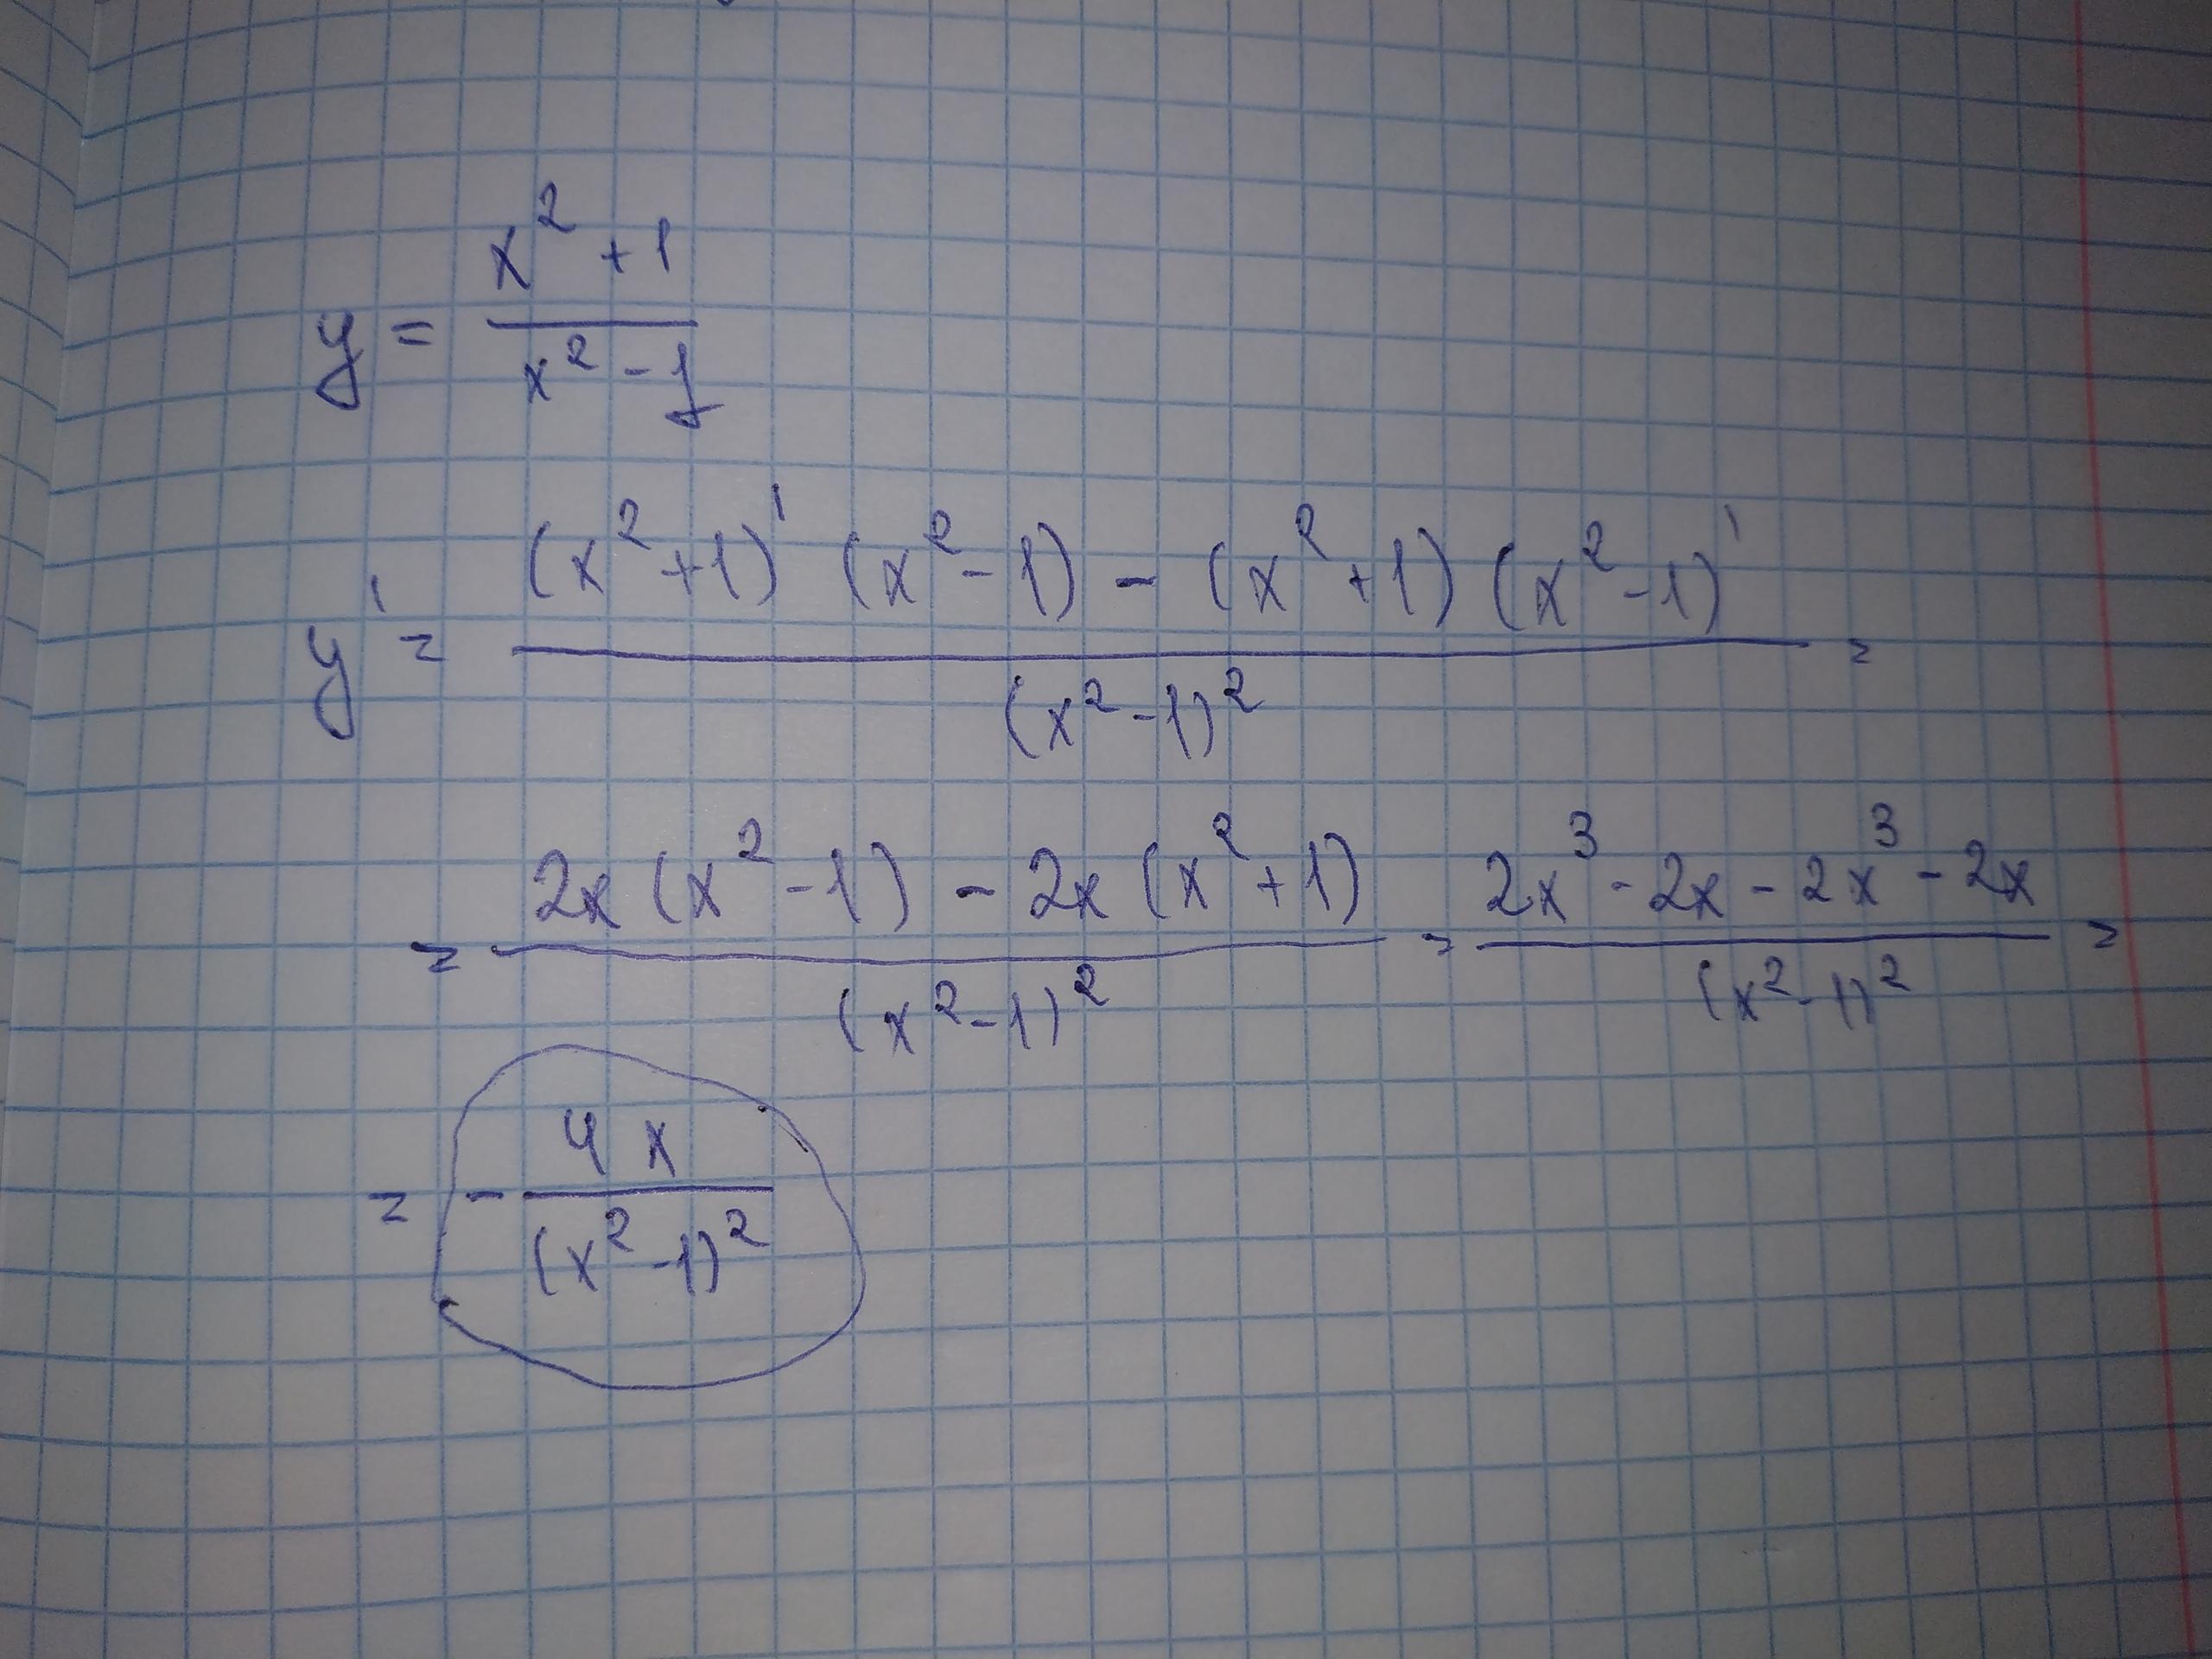 y = (x² + 1) / (x² - 1)
y' = ((x² + 1)' (x² - 1) - (x² + 1) (x² - 1)') / (x² - 1)² =
= (2x (x² - 1) - 2x (x² + 1)) / (x² - 1)² = (2x³ - 2x - 2x³ - 2x) / (x² - 1)² =
= - 4x / (x² - 1)²